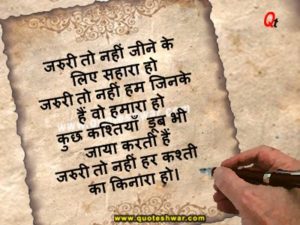 Qt
जरुरी तो नहीं जीने के
लिए सहारा हो
जरुरी तो नहीं हम जिनके
हैं वो हमारा हो
कुछ कश्तियाँ डूब भी
जाया करती हैं
जरुरी तो नहीं हर कश्ती
का किनारा हो।
www.quoteshwar.com